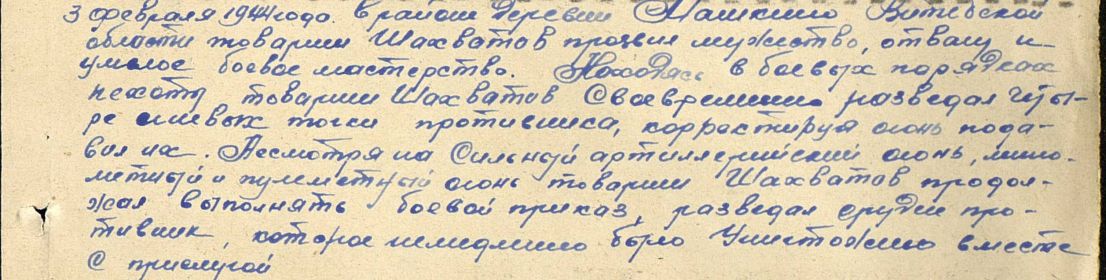 3 февраля 1944 года. в районе деревни Машкино Витебской
области товарищ Шахватов проявил мужество, отвагу и
умелое боевое мастерство. Находясь в боевых порядках
пехоты товарищ Шахватов Своевременно разведал четы-
ре огневых точки противника, корректируя огонь пода-
вил их. Несмотря на Сильный артиллерийский огонь, мино-
метный и пулеметный огонь товарищ Шахватов продол-
жая выполнять боевой приказ, разведал орудие про-
тивник, которое немедленно было Уничтожено вместе
С прислугой